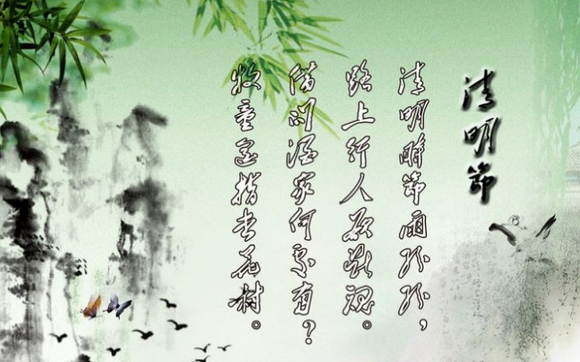 清明節
清明時節雨紛紛，
路上行人欲斷魂。
借問酒家何處有？
牧童遙指杏花村。